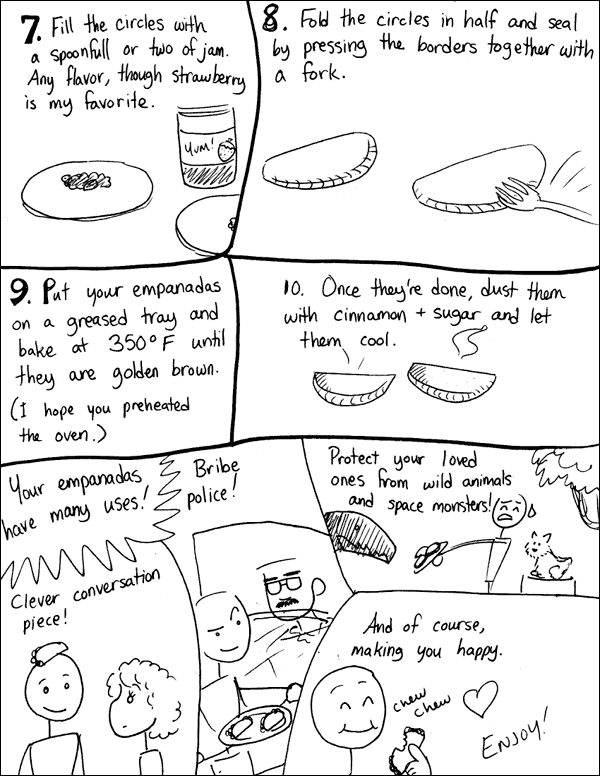 7. Fill the circles with
a spoonfull or two of jam.
Any flavor, though strawberry
is my favorite.
YUM!
8. Fold the circles in half and seal
by pressing the borders together with
a fork.
9. Put your empanadas
on a greased tray and
bake at 350°F until
they are golden brown.
(I hope you preheated
the oven.)
10. Once they're done, dust them
with cinnamon + sugar and let
them cool.
Your empanadas
have many uses!
Clever conversation
piece!
Bribe
police!
Protect your loved
ones from wild animals
and space monsters!
And of course,
making you happy.
chew
chew
ENJOY!